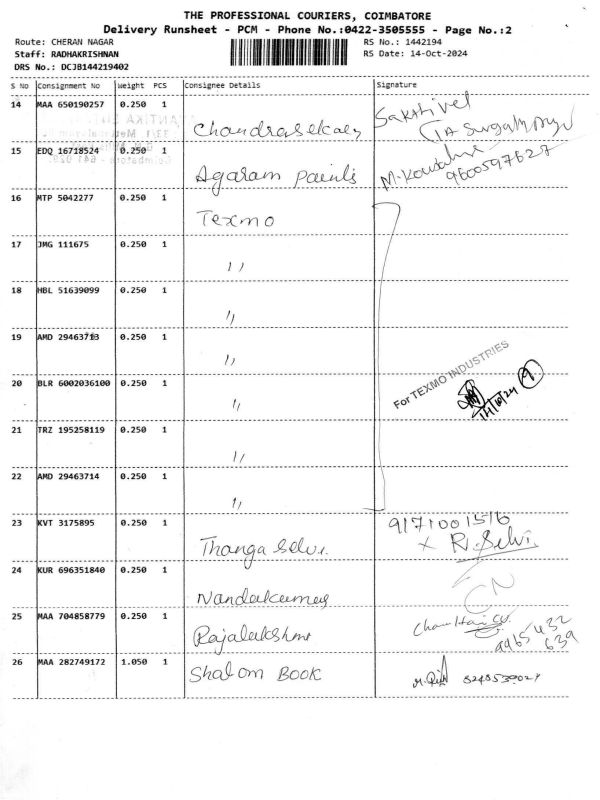 THE PROFESSIONAL COURIERS, COIMBATORE
Delivery Runsheet - PCM - Phone No.:0422-3505555 - Page No.:2
Route: CHERAN NAGAR RS No.: 1442194
Staff: RADHAKRISHNAN RS Date: 14-Oct-2024
DRS No.: DCJB144219402
S No Consignment No Weight PCS Consignee Details Signature
14 MAA 650190257 0.250 1 Chandrasekar Sakthivel
15 EDQ 16718524 0.250 1 Agaram Paints 9600597627
16 MTP 5042277 0.250 1 Texmo
17 JMG 111675 0.250 1 ,,
18 HBL 51639099 0.250 1 ,,
19 AMD 29463713 0.250 1 ,,
For TEXMO INDUSTRIES
20 BLR 6002036100 0.250 1 ,, 14/10/24 9
21 TRZ 195258119 0.250 1 ,,
22 AMD 29463714 0.250 1 ,,
23 KVT 3175895 0.250 1 Thanga Selvi. 9171001516
x R. Selvi
24 KUR 696351840 0.250 1 Nandakumar
25 MAA 704858779 0.250 1 Rajalakshmi 9965432
639
26 MAA 282749172 1.050 1 Shalom BOOK